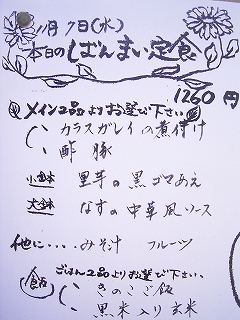 11月7日(水)
本日の しぜんまい定食
1260円
メイン2品よりお選び下さい
カラスガレイの煮付け
酢豚
小鉢 里芋の黒ゴマあえ
大鉢 なすの中華風ソース
他に・・・・みそ汁 フルーツ
ごはん2品よりお選び下さい。
きのこご飯
黒米入り玄米